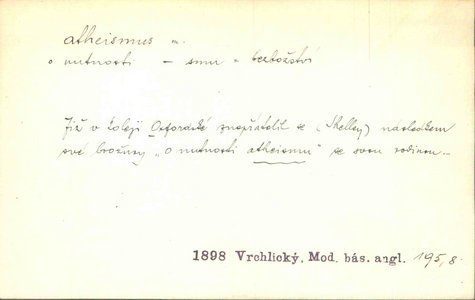 atheismus m.
o nutnosti – smu = bezbožství
Již v koleji Oxfordské znepřátelil se (Shelley) následkem
své brožury „o nutnosti atheismu" se svou rodinou..
1898 Vrchlický, Mod. bás. angl. 195,8.